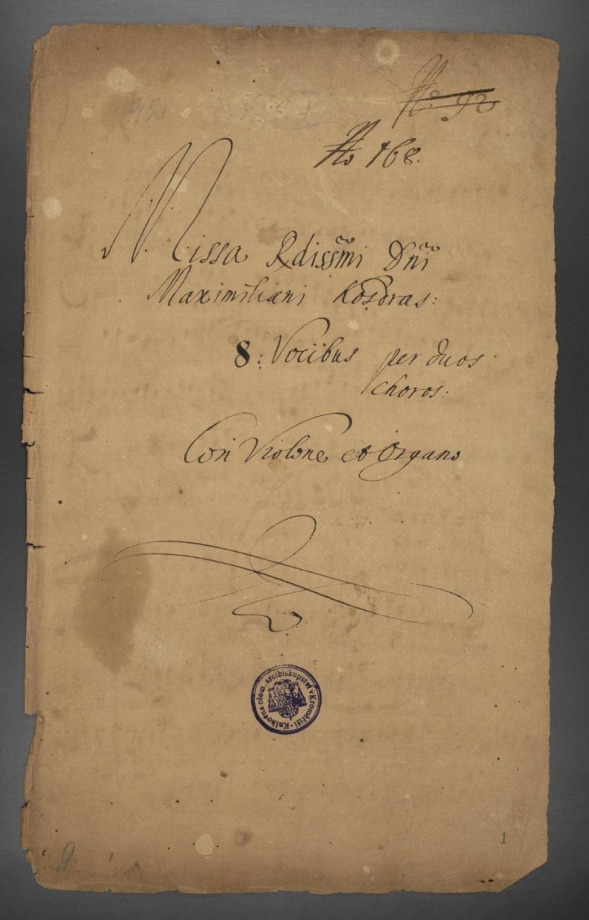 92
I
No 92
No 168.
Missa Rdissm̃i Dñi
Maximiliani
8: Vocibus per duos
choros:
Con Violone et Organo
Knihovna olom. arcibiskupství v Kroměříži
9
1